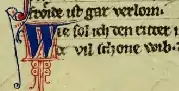 froide ist gar verlorn.
Wie sol ich den ritter
der vil schone wib.